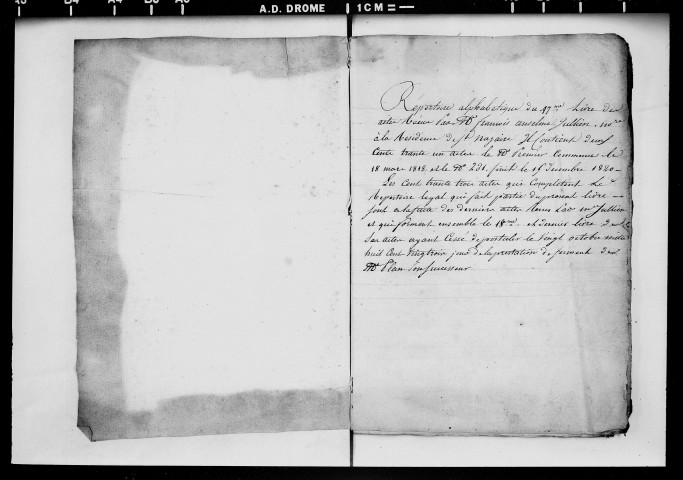 A.D. DROME 1CM
Répertoire alphabétique du 17me Livre des
actes Reçus Par Me françois anselme Jullien, nore
à la Résidence de St Nazaire Il Contient deux
Cents trente un actes le No Premier Commence le
18 mars 1818, et le No 231. finit le 15 Decembre 1820 —
Les Cent trente trois actes qui Complettent Le
Repertoire legal qui fait partie du présent livre —
sont extraits des derniers actes Reçus Par Me Jullien
et qui forment ensemble le 18me et Dernier livre
Ses actes ayant Cessé de postuler le vingt octobre mil
huit Cent vingt trois jour de la prestation de serment de
Me Plan son successeur